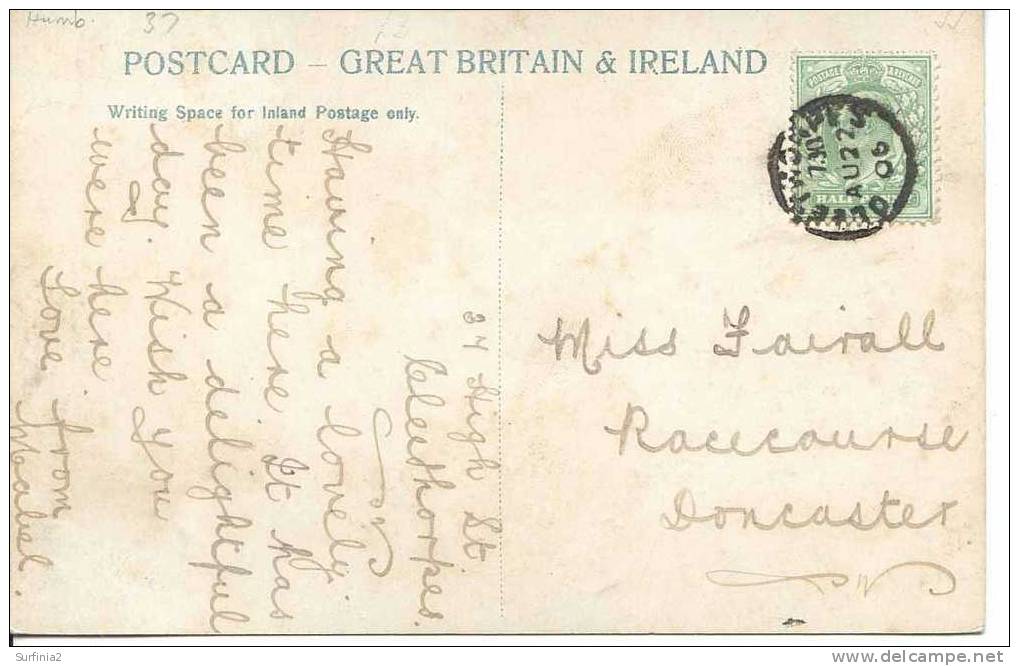 Humb. 37
POSTCARD – GREAT BRITAIN & IRELAND
Writing Space for Inland Postage only.
34 High St.
Cleethorpes.
Having a lovely
time here. It has
been a delightful
day. Wish you
were here.
Love from
Mabel.
POSTAGE & REVENUE
HALF
CLEETHORPES
7.30 PM
AU 22
06
Miss Fairall
Racecourse
Doncaster
Surfinia2
delcampe.net